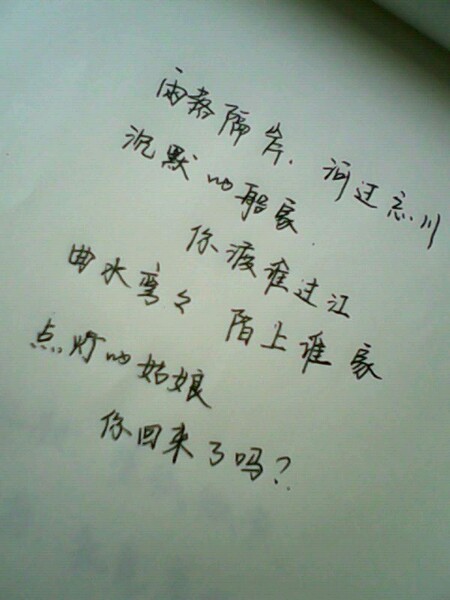 雨落隔岸.河过忘川
沉默的船家
你渡谁过江
曲水弯々 陌上谁家
点灯的姑娘
你回来了吗?